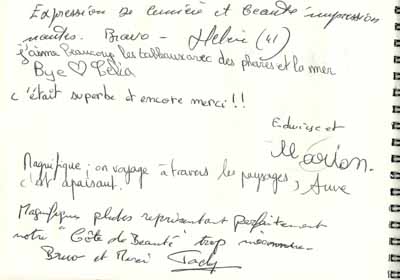 Expression de lumière et beauté impression
Bravo - Helvi (41)
j'aime beaucoup les tableaux avec des phares et la mer
Bye ♡ Célia
c'était superbe et encore merci!!
Edwige et
Marion.
Magnifique; on voyage à travers les paysages,
c'est apaisant. Anne
Magnifiques photos représentant parfaitement
notre "Côte de Beauté" trop méconnue.
Bravo et Merci